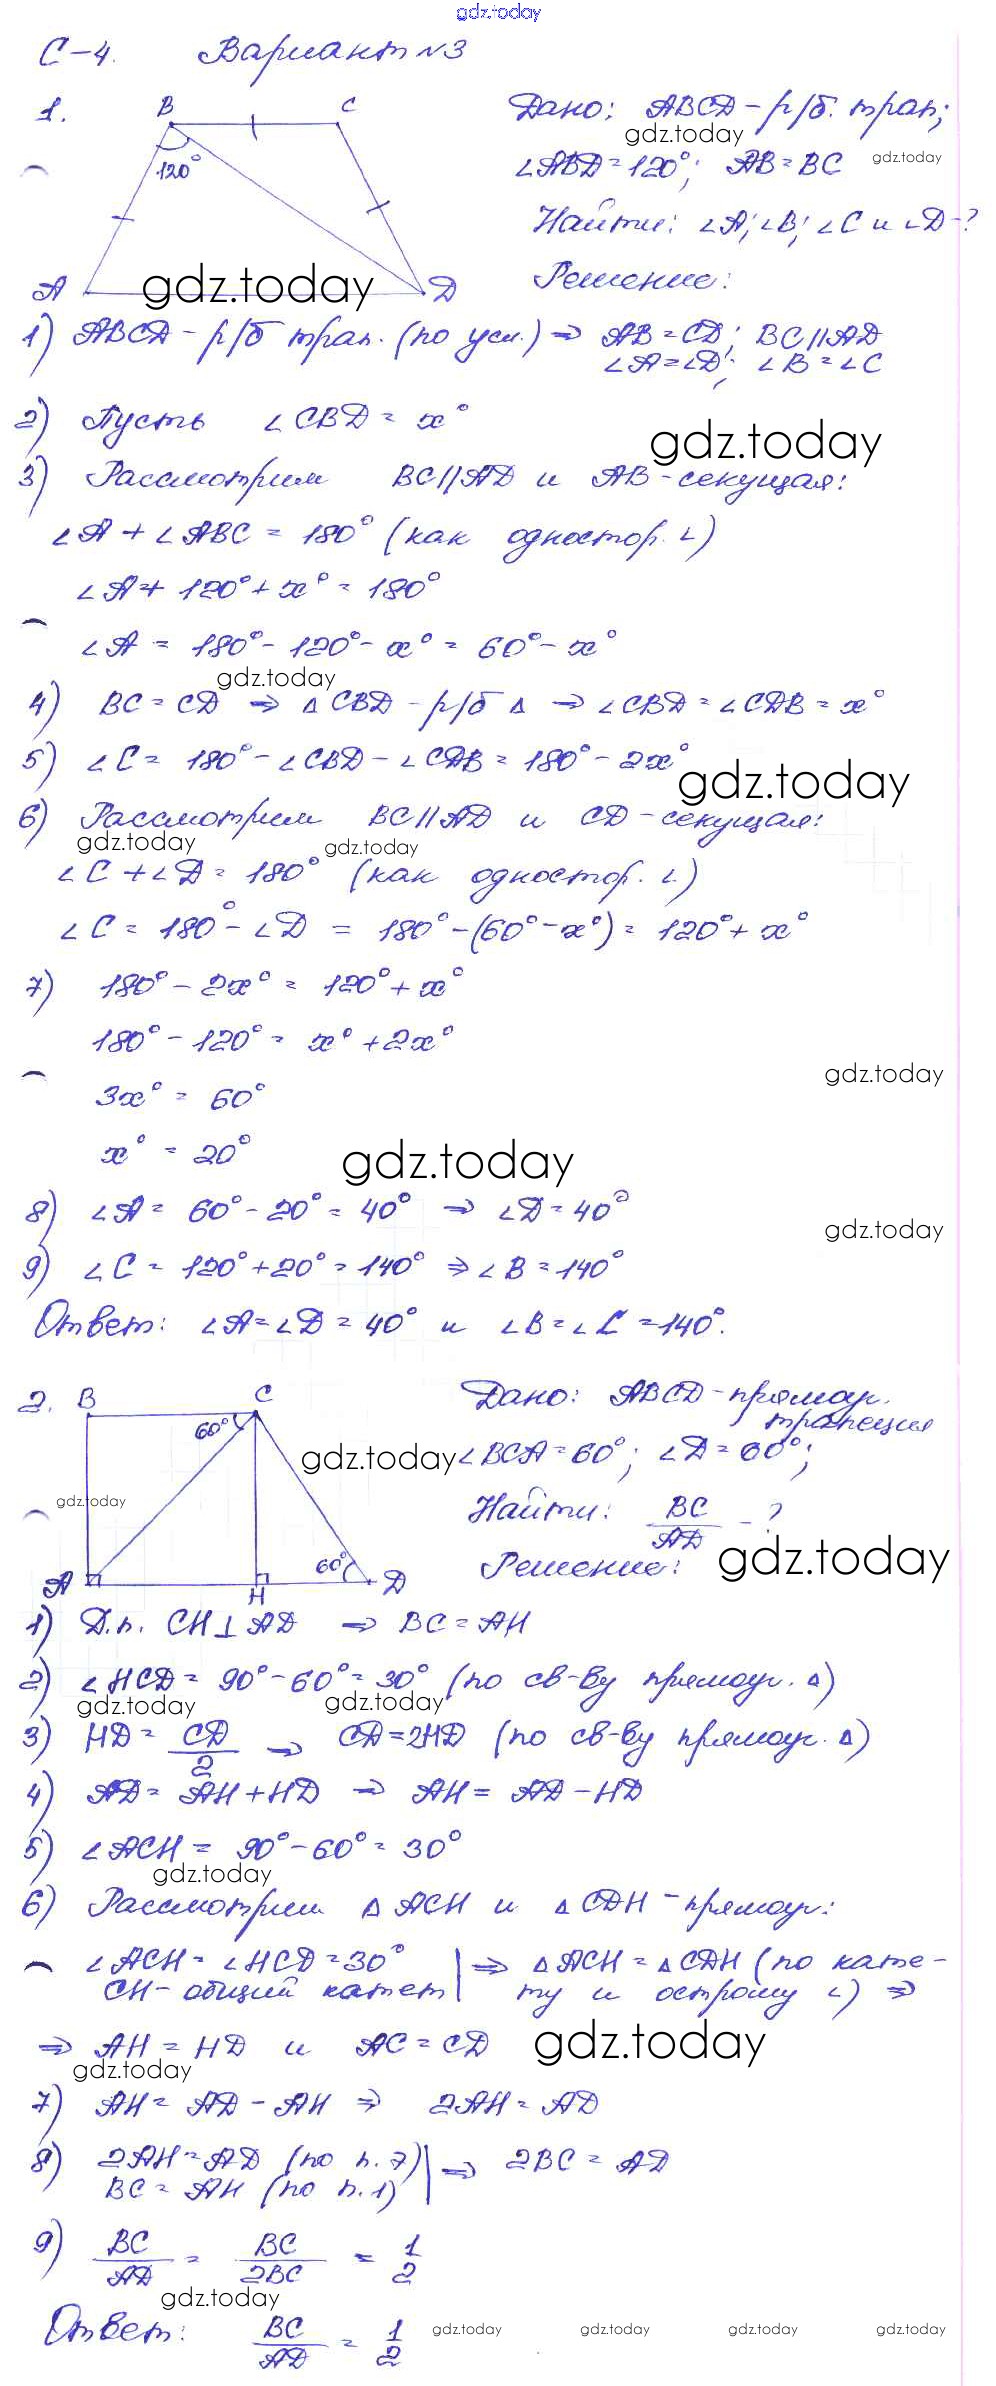 gdz.today
С-4. Вариант №3
1. B C
120°
A D
Дано: ABCD - р/б. трап;
gdz.today
∠ABD = 120°; AB = BC gdz.today
Найти: ∠A; ∠B; ∠C и ∠D - ?
Решение:
gdz.today
1) ABCD - р/б трап. (по усл.) ⇒ AB = CD; BC || AD
∠A = ∠D; ∠B = ∠C
2) Пусть ∠CBD = x°
gdz.today
3) Рассмотрим BC || AD и AB - секущая:
∠A + ∠ABC = 180° (как одностор. ∠)
∠A + 120° + x° = 180°
∠A = 180° - 120° - x° = 60° - x°
gdz.today
4) BC = CD ⇒ △ CBD - р/б △ ⇒ ∠CBD = ∠CDB = x°
5) ∠C = 180° - ∠CBD - ∠CDB = 180° - 2x°
gdz.today
6) Рассмотрим BC || AD и CD - секущая:
gdz.today gdz.today
∠C + ∠D = 180° (как одностор. ∠)
∠C = 180° - ∠D = 180° - (60° - x°) = 120° + x°
7) 180° - 2x° = 120° + x°
180° - 120° = x° + 2x°
gdz.today
3x° = 60°
x° = 20°
gdz.today
8) ∠A = 60° - 20° = 40° ⇒ ∠D = 40°
gdz.today
9) ∠C = 120° + 20° = 140° ⇒ ∠B = 140°
Ответ: ∠A = ∠D = 40° и ∠B = ∠C = 140°.
2. B C
60°
A H D
60°
Дано: ABCD - прямоуг.
трапеция
gdz.today
∠BCA = 60°; ∠D = 60°;
gdz.today
Найти: BC/AD - ?
gdz.today
Решение:
1) Д.п. CH ⊥ AD ⇒ BC = AH
2) ∠HCD = 90° - 60° = 30° (по св-ву прямоуг. △)
gdz.today gdz.today
3) HD = CD/2 ⇒ CD = 2HD (по св-ву прямоуг. △)
4) AD = AH + HD ⇒ AH = AD - HD
5) ∠ACH = 90° - 60° = 30°
gdz.today
6) Рассмотрим △ ACH и △ CDH - прямоуг:
∠ACH = ∠HCD = 30° | ⇒ △ ACH = △ CDH (по кате-
CH - общий катет | ту и острому ∠) ⇒
⇒ AH = HD и AC = CD
gdz.today
gdz.today
7) AH = AD - AH ⇒ 2AH = AD
8) 2AH = AD (по п. 7) | ⇒ 2BC = AD
BC = AH (по п. 1) |
9) BC/AD = BC/2BC = 1/2
gdz.today
Ответ: BC/AD = 1/2
gdz.today gdz.today gdz.today gdz.today